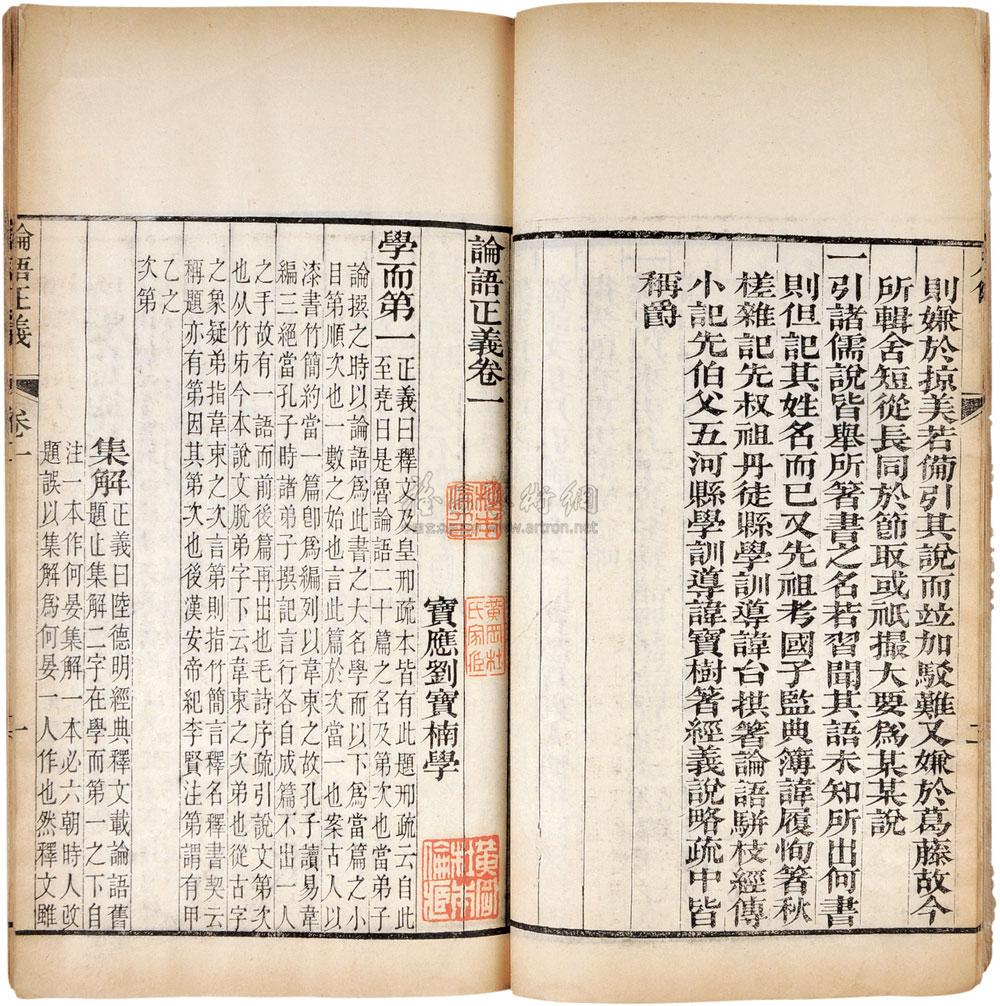 則嫌於掠美若備引其說而竝加駁難又嫌於葛藤故今
所輯舍短從長同於節取或祇撮大要爲某某說
一引諸儒說皆舉所箸書之名若習聞其語未知所出何書
則但記其姓名而已又先祖考國子監典簿諱履恂箸秋
槎雜記先叔祖丹徒縣學訓導諱台拱箸論語駢枝經傳
小記先伯父五河縣學訓導諱寶樹箸經義說略疏中皆
稱爵
二
論語正義卷一
寶應劉寶楠學
學而第一
正義曰釋文及皇邢疏本皆有此題邢疏云自此
至堯曰是魯論語二十篇之名及第次也當弟子
論撰之時以論語爲此書之大名學而以下爲當篇之小
目第順次也一數之始也言此篇於次當一也案古人以
漆書竹簡約當一篇卽爲編列以韋束之故孔子讀易韋
編三絕當孔子時諸弟子撰記言行各自成篇不出一人
之手故有一語而前後篇再出也毛詩序疏引說文第次
也从竹弟今本說文脫弟字下云韋束之次弟也從古字
之象疑弟指韋束之次言第則指竹簡言釋名釋書契云
稱題亦有第因其第次也後漢安帝紀李賢注第謂有甲
乙之
次第
集解
正義曰陸德明經典釋文載論語舊
題止集解二字在學而第一之下自
注一本作何晏集解一本必六朝時人改
題誤以集解爲何晏一人作也然釋文雖
論語正義
卷一
一
黃岡杜
氏家藏
www.artron.net